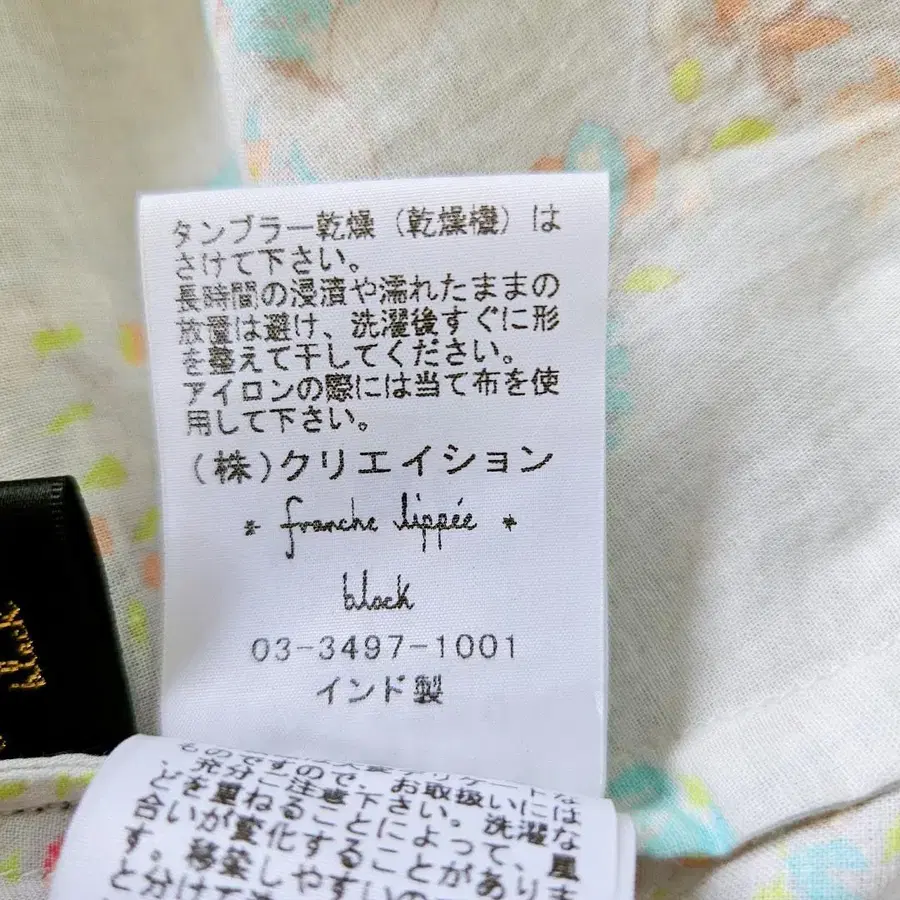 タンブラー乾燥（乾燥機）は
さけて下さい。
長時間の浸漬や濡れたままの
放置は避け、洗濯後すぐに形
を整えて干してください。
アイロンの際には当て布を使
用して下さい。
(株)クリエイション
* franche lippée *
block
03-3497-1001
インド製
block
ものですので、お取扱いには
充分ご注意下さい。洗濯な
どを重ねることによって、風
合いが変化することがありま
す。移染しやすい
と分けて